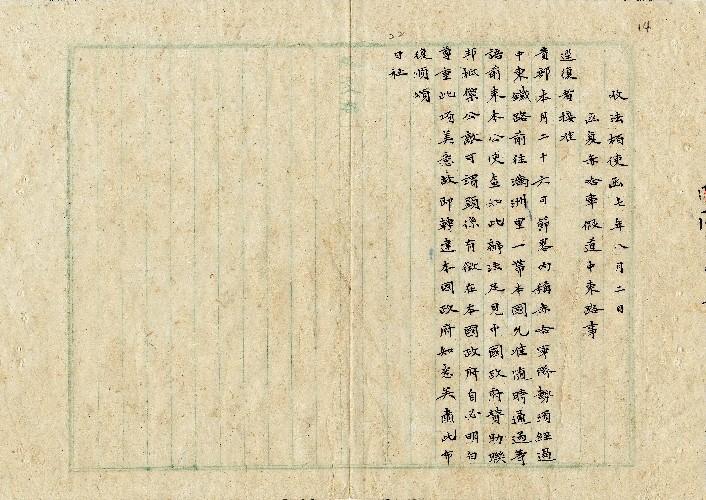 14
收法柏使函七年八月二日
函复赤哈軍假道中東路事
逕復者接准
貴部本月二十六可節畧內稱赤哈軍隊勢須經過
中東鐵路前往滿洲里一帶本國允准隨時通過等
語前來本公使查如此辦法足見中國政府贊助聯
邦抵禦公敵可謂顯係有欲在本國政府自必明白
尊重此項美意故即轉達本國政府知悉矣肅此布
復順頌
日祉